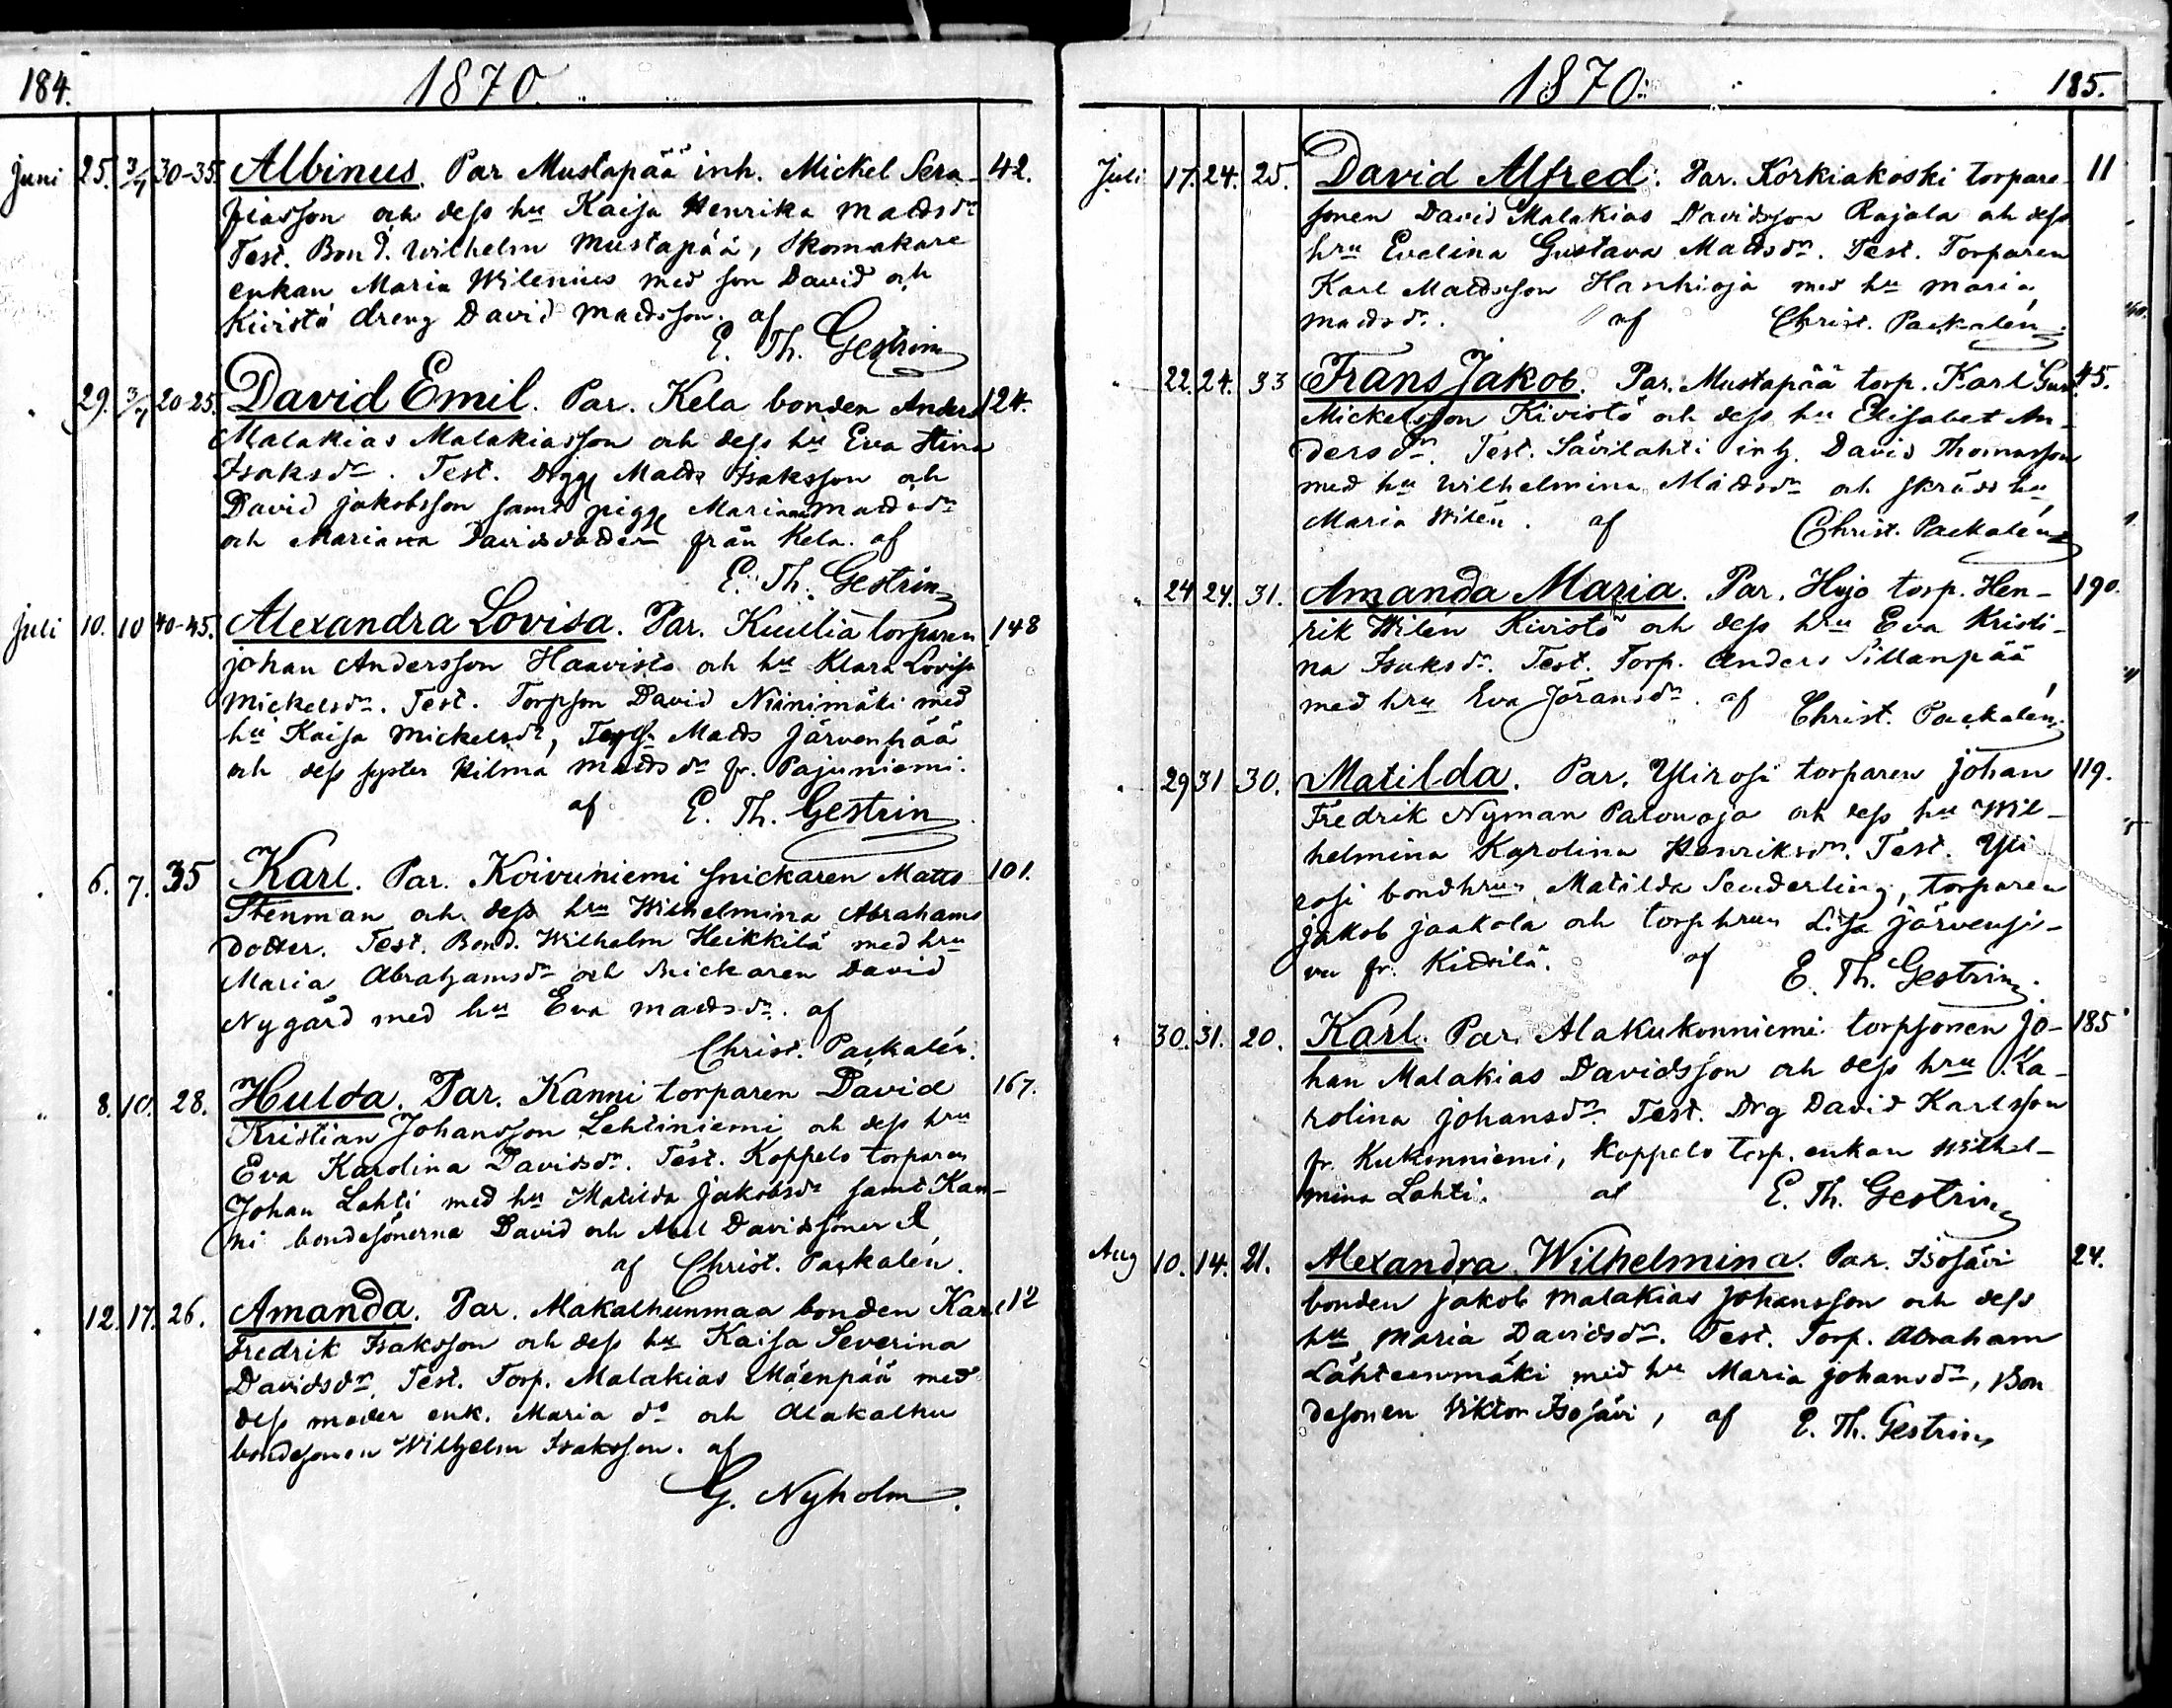 184. 1870.
Juni 25. 3/7 30-35. Albinus. Par Mustapää inh. Mickel Sera- 42.
fiasson och dess hu Kaisa Henrika Matsdr
Test. Bond. Wilhelm Mustapää, Skomakare
enkan Maria Wilenius med son David och
Kivistö dreng David Mattsson. af
E. Th. Gestrin
" 29. 3/7 20-25. David Emil. Par. Kela bonden Anders 124.
Malakias Malakiasson och dess hu Eva Stina
Isaksdr. Test. Drgg Matts Isaksson och
David Jakobsson samt pigg Mariana Mattsdr
och Mariana Davidsdotter från Kela. af
E. Th. Gestrin
Juli 10. 10 40-45. Alexandra Lovisa. Par. Kuulia torparen 148
Johan Andersson Haavisto och hu Klara Lovisa
Mickelsdr. Test. Torpson David Niinimäki med
hu Kaisa Mickelsdr, Matts Järvenpää
och dess syster Hilma Mattsdr fr. Pajuniemi.
af E. Th. Gestrin
" 6. 7. 35 Karl. Par. Koivuniemi snickaren Matts 101.
Stenman och dess hru Wilhelmina Abrahams
dotter. Test. Bond. Wilhelm Heikkilä med hru
Maria Abrahamsdr och Snickaren David
Nygård med hu Eva Mattsdr. af
Christ. Packalén.
" 8. 10. 28. Hulda. Par. Kanni torparen David 167.
Kristian Johansson Lehtiniemi och dess hru
Eva Karolina Davidsdr. Test. Koppelo torparen
Johan Lahti med hu Matilda Jakobsdr samt Kan-
ni bondesönerna David och Axel Davidssöner
af Christ. Packalén.
" 12. 17. 26. Amanda. Par. Alakalhunmaa bonden Karl 12
Fredrik Isaksson och dess hu Kaisa Severina
Davidsdr. Test. Torp. Malakias Mäenpää med
dess moder enk. Maria dr och Alakalhu
bondesonen Wilhelm Isaksson. af
G. Nyholm.
1870. 185.
Juli 17. 24. 25. David Alfred. Par. Korkiakoski torpare- 11
sonen David Malakias Davidsson Rajala och dess
hru Evelina Gustava Mattsdr. Test. Torparen
Karl Mattsson Hanhioja med hu Maria
Mattsdr. af Christ. Packalén.
" 22. 24. 33 Frans Jakob. Par. Mustapää torp. Karl Gust. 45.
Mickelsson Kivistö och dess hu Elisabet An-
dersdr. Test. Savilahti inh. David Thomasson
med hu Wilhelmina Mattsdr och skrädd hu
Maria Wilén. af Christ. Packalén
" 24 24. 31. Amanda Maria. Par. Hujo torp. Hen- 190.
rik Wilén Kivistö och dess hru Eva Kristi-
na Isaksdr. Test. Torp. Anders Sillanpää
med hru Eva Göransdr. af Christ. Packalén.
" 29 31 30. Matilda. Par. Ylirosi torparen Johan 119.
Fredrik Nyman Palonoja och dess hru Wil-
helmina Karolina Henriksdr. Test. Yli
rosi bondhrun Matilda Senderling, torparen
Jakob Jaakola och torphrun Lisa Järvensi-
vu fr. af E. Th. Gestrin.
" 30. 31. 20. Karl. Par. Alakukonniemi torpsonen Jo- 185
han Malakias Davidsson och dess hru Ka-
rolina Johansdr. Test. Drg David Karlsson
fr. Kukonniemi, Koppelo torp. enkan Wilhel-
mina Lahti. af E. Th. Gestrin
Aug 10. 14. 21. Alexandra Wilhelmina. Par. Isosävi 24.
bonden Jakob Malakias Johansson och dess
hu Maria Davidsdr. Test. Torp. Abraham
Lähteenmäki med hu Maria Johansdr, Bon
desonen Viktor Isosävi, af E. Th. Gestrin